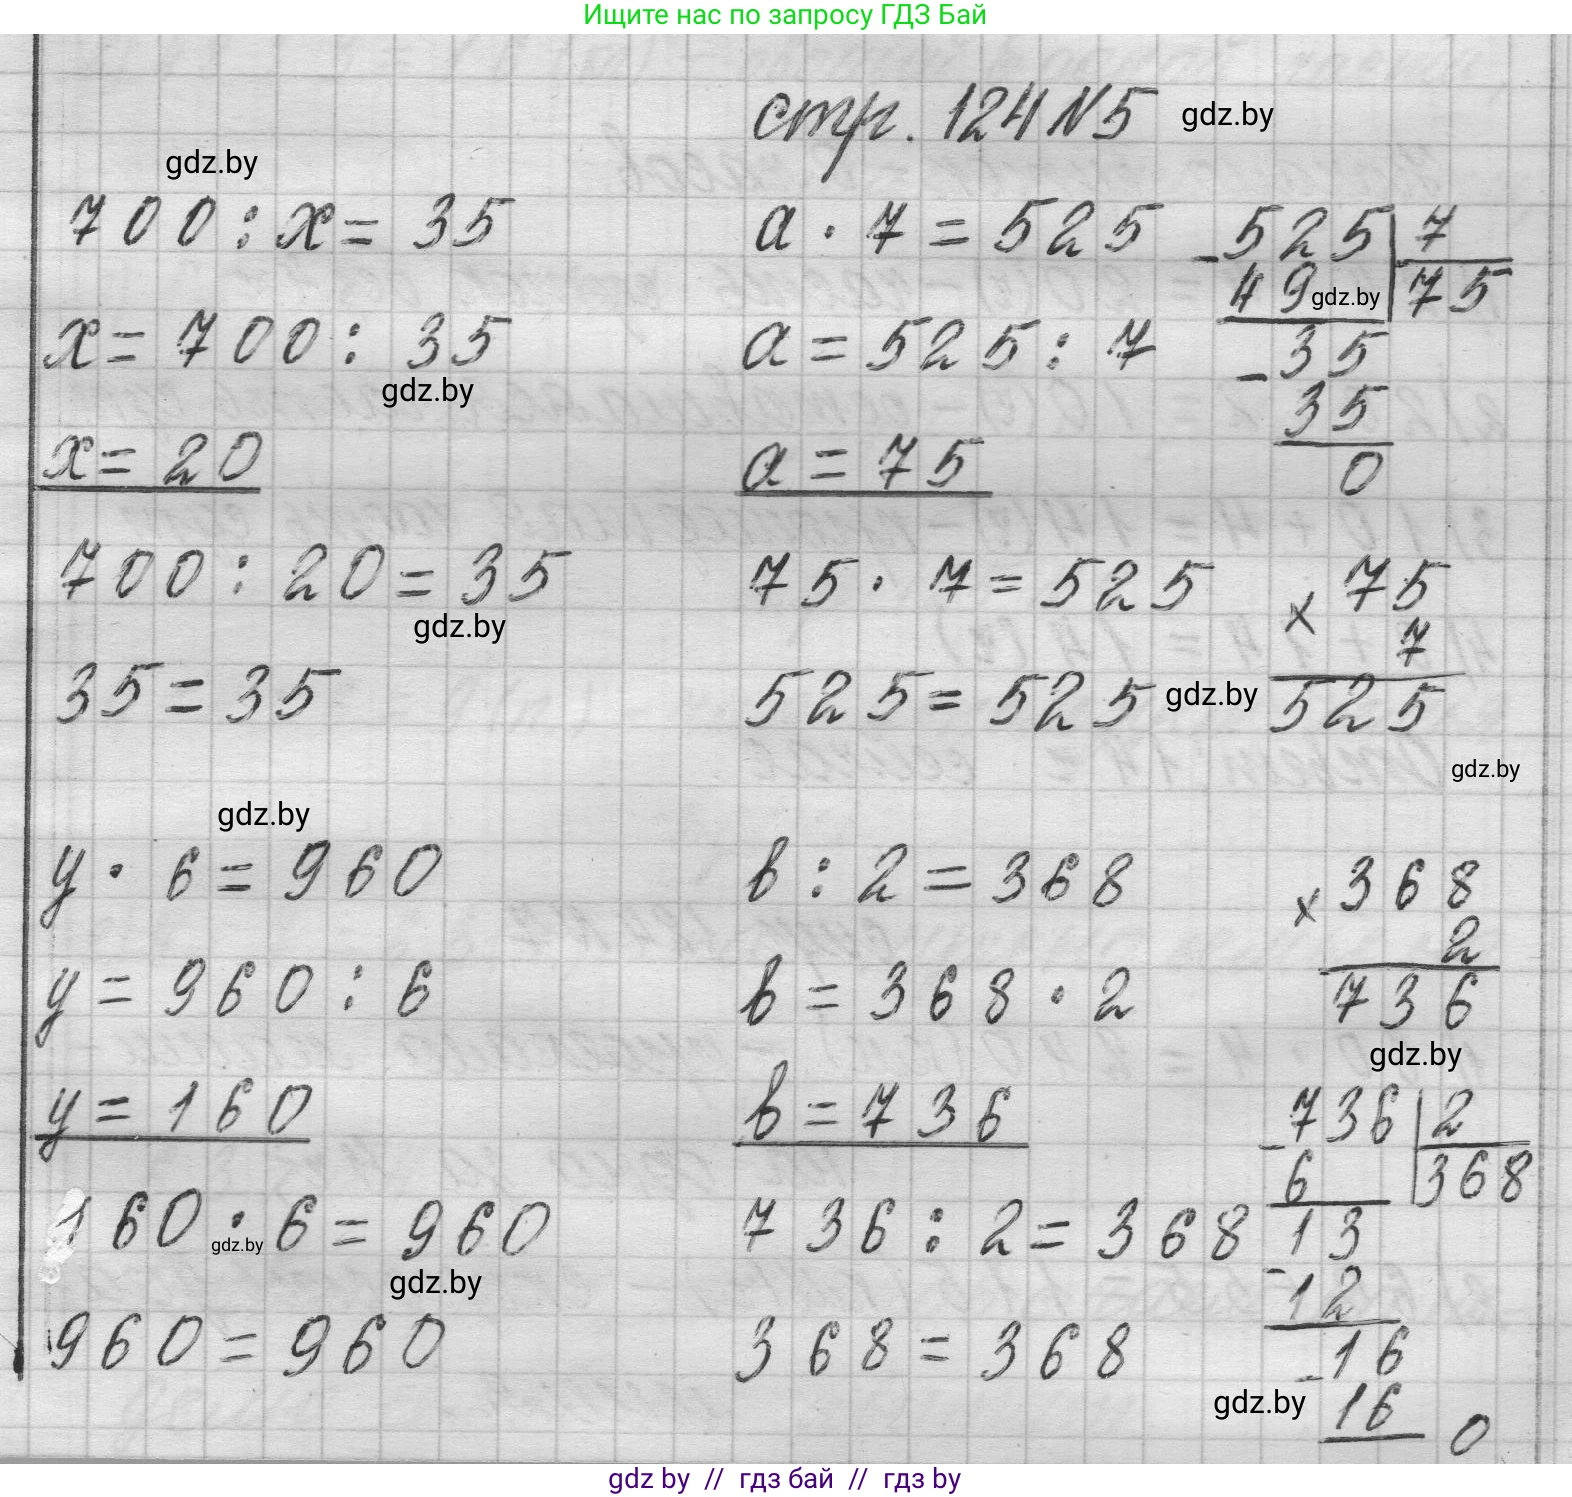 Ищите нас по запросу ГДЗ Бай
стр. 124 N 5 gdz.by
gdz.by
700 : x = 35
x = 700 : 35
gdz.by
x = 20
700 : 20 = 35
gdz.by
35 = 35
a · 7 = 525
a = 525 : 7
a = 75
75 · 7 = 525
525 = 525 gdz.by
- 525 | 7
49 gdz.by | 75
- 35
35
0
x 75
7
525
gdz.by
gdz.by
y · 6 = 960
y = 960 : 6
y = 160
160 · 6 = 960
gdz.by
gdz.by
960 = 960
в : 2 = 368
в = 368 · 2
в = 736
736 : 2 = 368
368 = 368
x 368
2
736
gdz.by
- 736 | 2
6 | 368
13
- 12
- 16
gdz.by 16
0
gdz by // гдз бай // гдз by